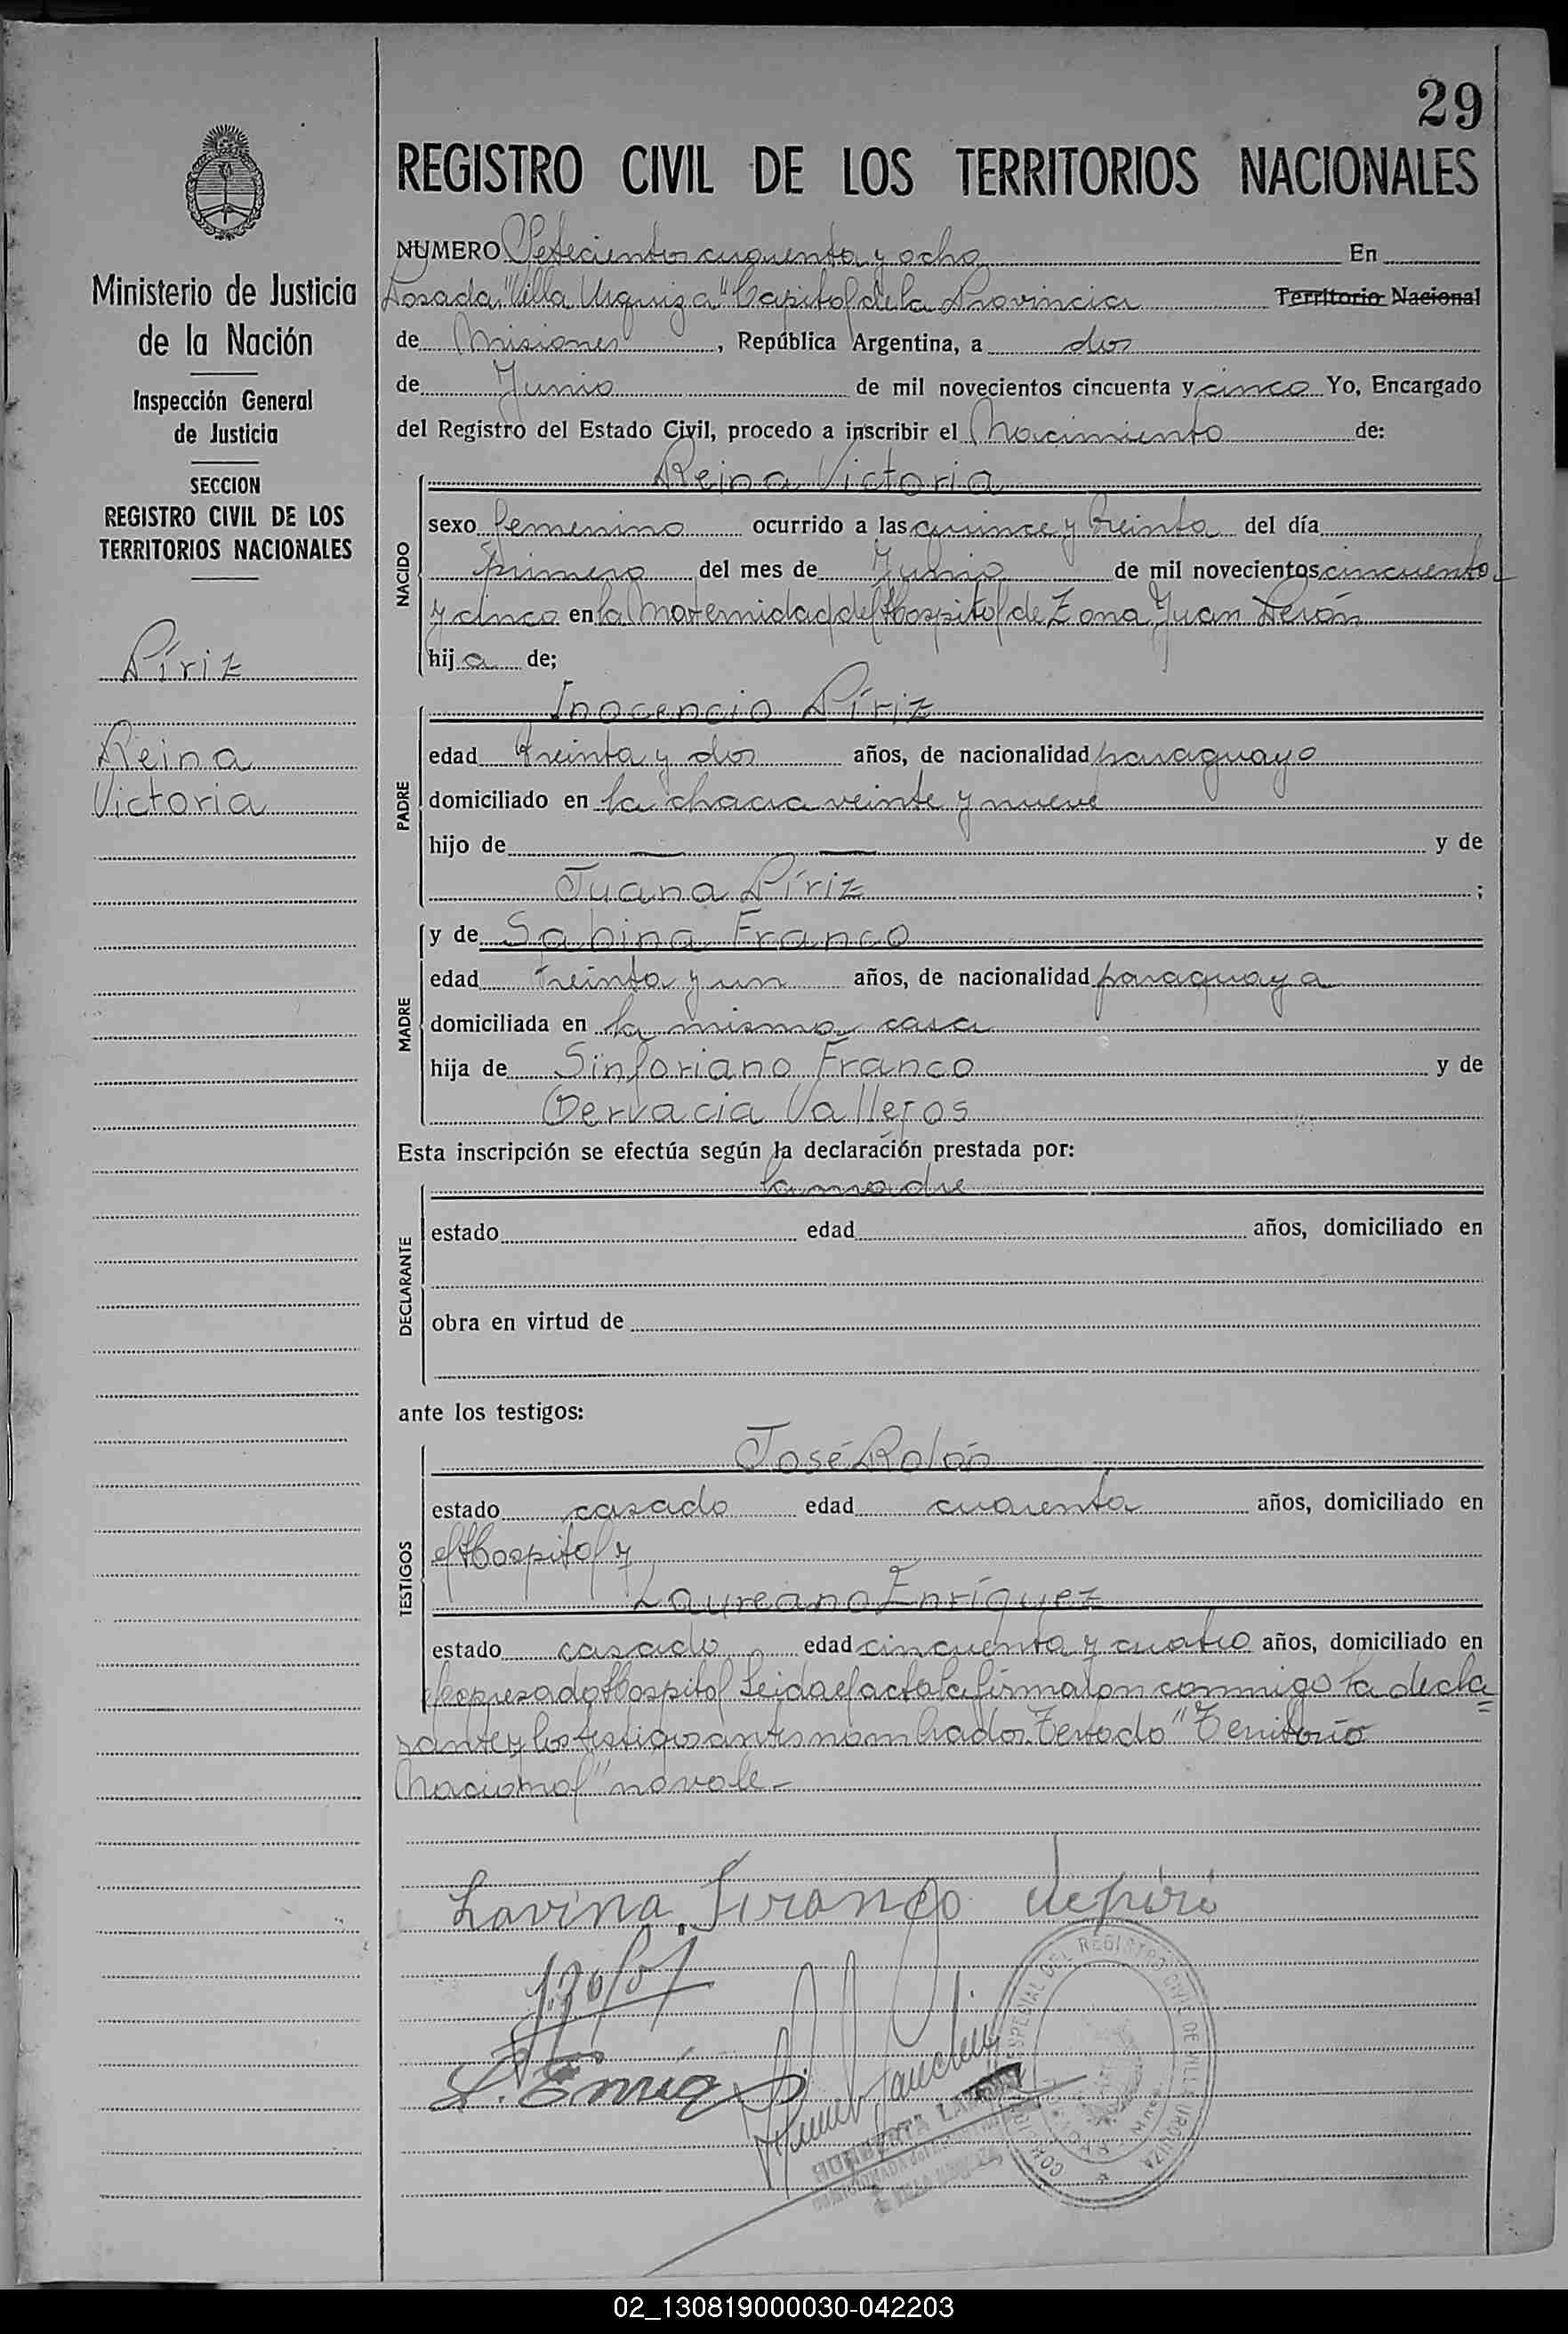 29
REGISTRO CIVIL DE LOS TERRITORIOS NACIONALES
Ministerio de Justicia
de la Nación
Inspección General
de Justicia
SECCION
REGISTRO CIVIL DE LOS
TERRITORIOS NACIONALES
Píriz
Reina
Victoria
NUMERO Setecientos cuarenta y ocho En
Posadas "Villa Urquiza" Capital de la Provincia Territorio Nacional
de Misiones, República Argentina, a dos
de Junio de mil novecientos cincuenta y cinco Yo, Encargado
del Registro del Estado Civil, procedo a inscribir el Nacimiento de:
Reina Victoria
NACIDO
sexo femenino ocurrido a las quince y treinta del día
primero del mes de Junio de mil novecientos cincuenta
y cinco en la Maternidad del Hospital de Zona Juan Perón
hija de;
Inocencio Píriz
PADRE
edad treinta y dos años, de nacionalidad paraguayo
domiciliado en la chacra veinte y nueve
hijo de — — y de
Juana Píriz;
MADRE
y de Sabina Franco
edad treinta y un años, de nacionalidad paraguaya
domiciliada en la misma casa
hija de Sinforiano Franco y de
Dervacia Vallejos
Esta inscripción se efectúa según la declaración prestada por:
la madre
DECLARANTE
estado edad años, domiciliado en
obra en virtud de
ante los testigos:
José Rolón
TESTIGOS
estado casado edad cuarenta años, domiciliado en
el Hospital y
Laureano Enríquez
estado casado edad cincuenta y cuatro años, domiciliado en
el expresado Hospital Leida el acta la firmaron conmigo la decla=
rante y los testigos antes nombrados. Testado "Territorio
Nacional" no vale-
Lavina Firango depiri
L. Enriq
HUMBERTA
REGISTRO CIVIL DE VILLA URQUIZA
02_130819000030-042203